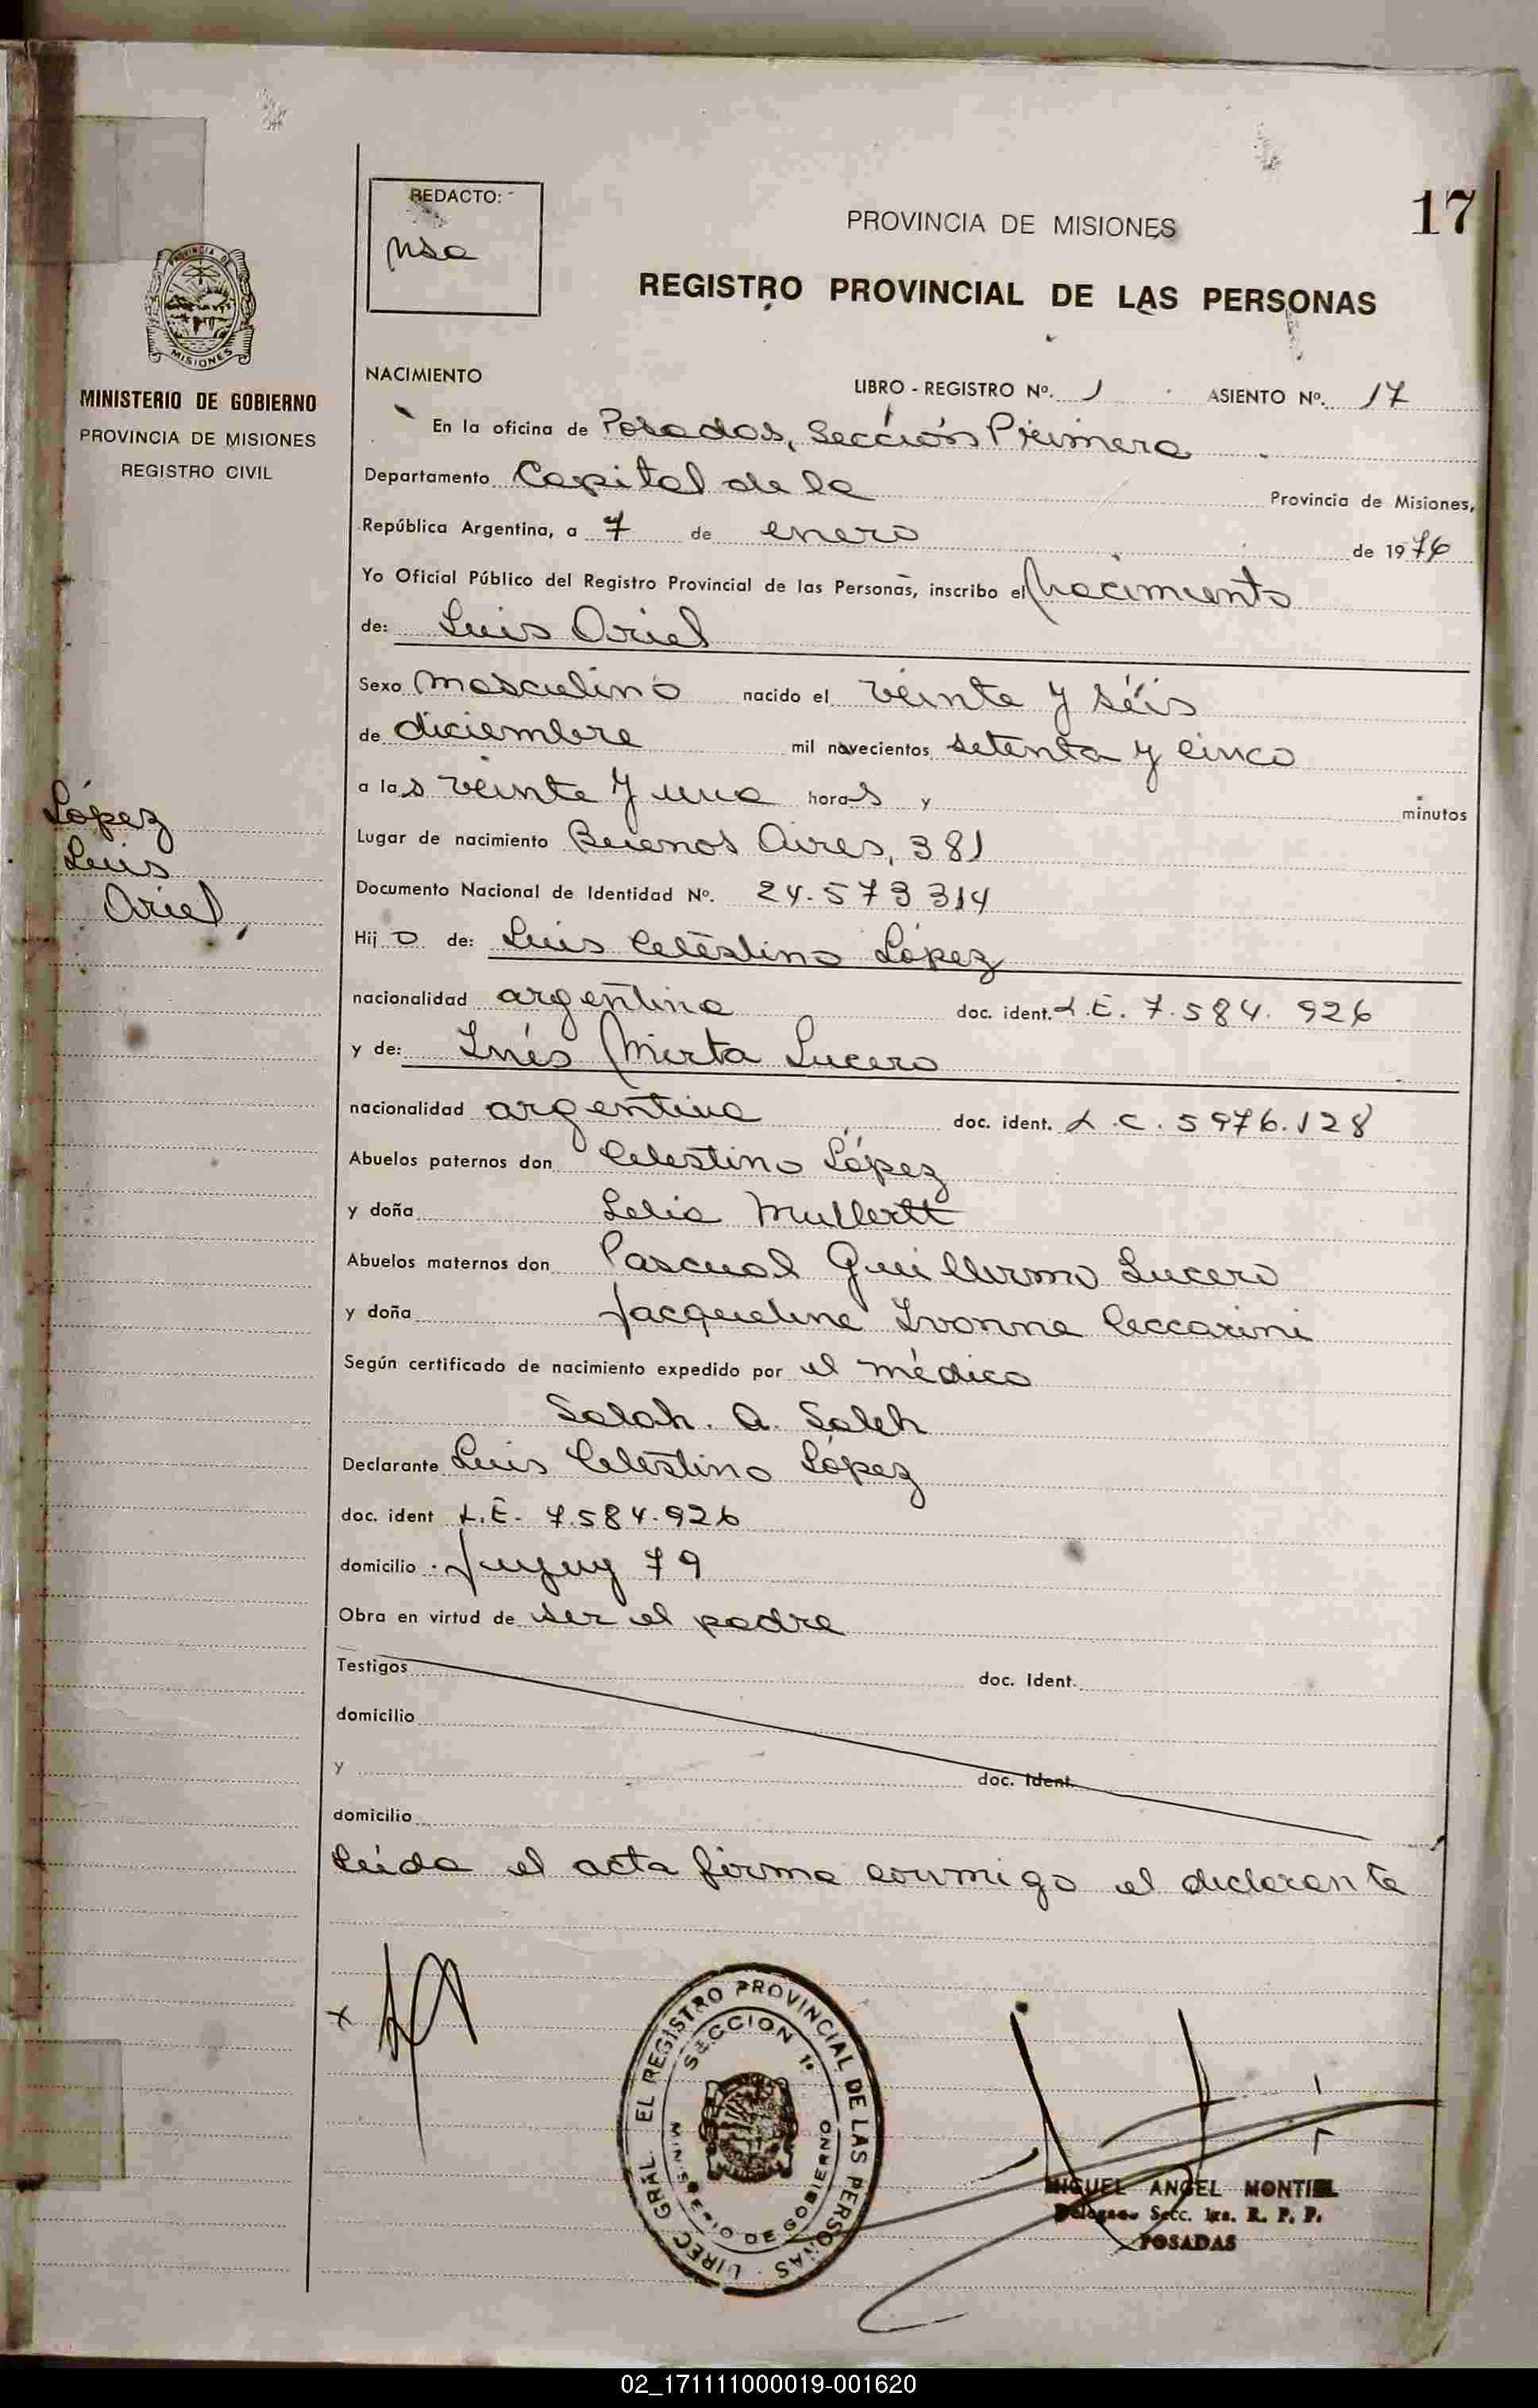 17
REDACTO:
nsa
PROVINCIA DE MISIONES
REGISTRO PROVINCIAL DE LAS PERSONAS
PROVINCIA DE
MISIONES
MINISTERIO DE GOBIERNO
PROVINCIA DE MISIONES
REGISTRO CIVIL
López
Luis
Ariel
NACIMIENTO
LIBRO - REGISTRO Nº. 1 ASIENTO Nº. 17
En la oficina de Posadas, Sección Primera
Departamento Capital de la Provincia de Misiones,
República Argentina, a 7 de enero de 1976
Yo Oficial Público del Registro Provincial de las Personas, inscribo el nacimiento
de: Luis Ariel
Sexo masculino nacido el veinte y séis
de diciembre mil novecientos setenta y cinco
a las veinte y una horas y minutos
Lugar de nacimiento Buenos Aires, 381
Documento Nacional de Identidad Nº. 24.573314
Hijo de: Luis Celestino López
nacionalidad argentina doc. ident. L.E. 7.584.926
y de: Inés Mirta Lucero
nacionalidad argentina doc. ident. L.C. 5976.128
Abuelos paternos don Celestino López
y doña Lelia Mullertt
Abuelos maternos don Pascual Guillermo Lucero
y doña Jacqueline Ivonne Ceccarini
Según certificado de nacimiento expedido por el médico
Salah. A. Saleh
Declarante Luis Celestino López
doc. ident L.E. 7.584.926
domicilio Jujuy 79
Obra en virtud de ser el padre
Testigos doc. Ident.
domicilio
y doc. Ident.
domicilio
Leída el acta firma conmigo el declarante
DIREC. GRAL. EL REGISTRO PROVINCIAL DE LAS PERSONAS
SECCION 1ª
MINISTERIO DE GOBIERNO
MIGUEL ANGEL MONTIEL
Delegado Secc. 1ra. R. P. P.
POSADAS
02_171111000019-001620